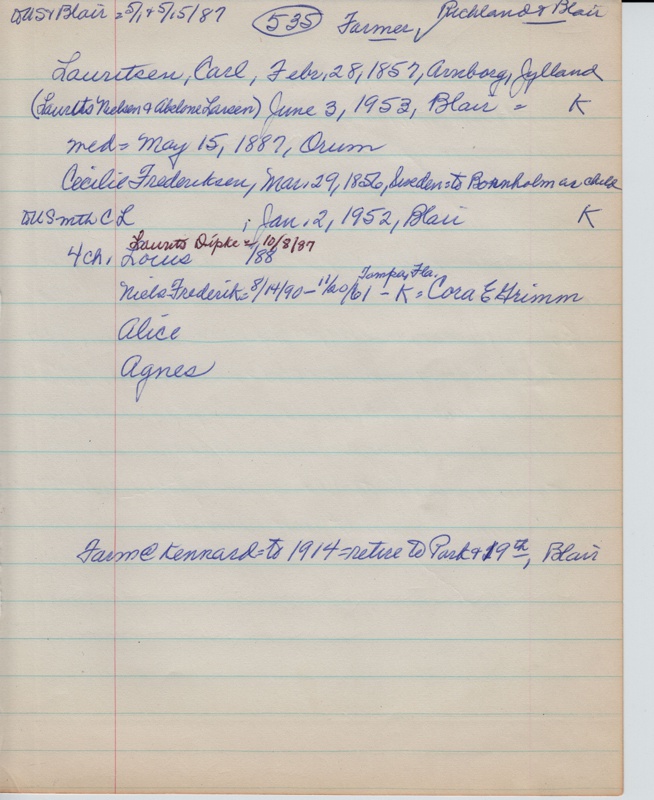 to US & Blair = 5/1 & 5/15/87 (535) Farmer, Richland & Blair
Lauritsen, Carl, Febr. 28, 1857, Arnborg, Jylland
(Laurits Nielsen & Abelone Larsen) June 3, 1953, Blair = K
med = May 15, 1887, Orum
Cecilie Frederiksen, Mar. 29, 1856, Sweden = to Bornholm as child
to US mth C L ; Jan. 2, 1952, Blair K
Laurits Dipke = 10/8/87
4 ch. Louis /88
Tampa, Fla.
Niels Frederik = 8/14/90 - 11/20/61 - K = Cora E Grimm
Alice
Agnes
Farm @ Kennard = to 1914 = retire to Park & 19th, Blair